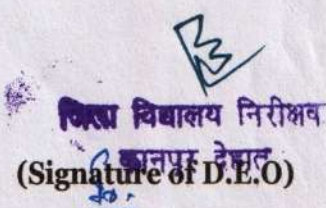 जिला विद्यालय निरीक्षक
कानपुर देहात
(Signature of D.E.O)